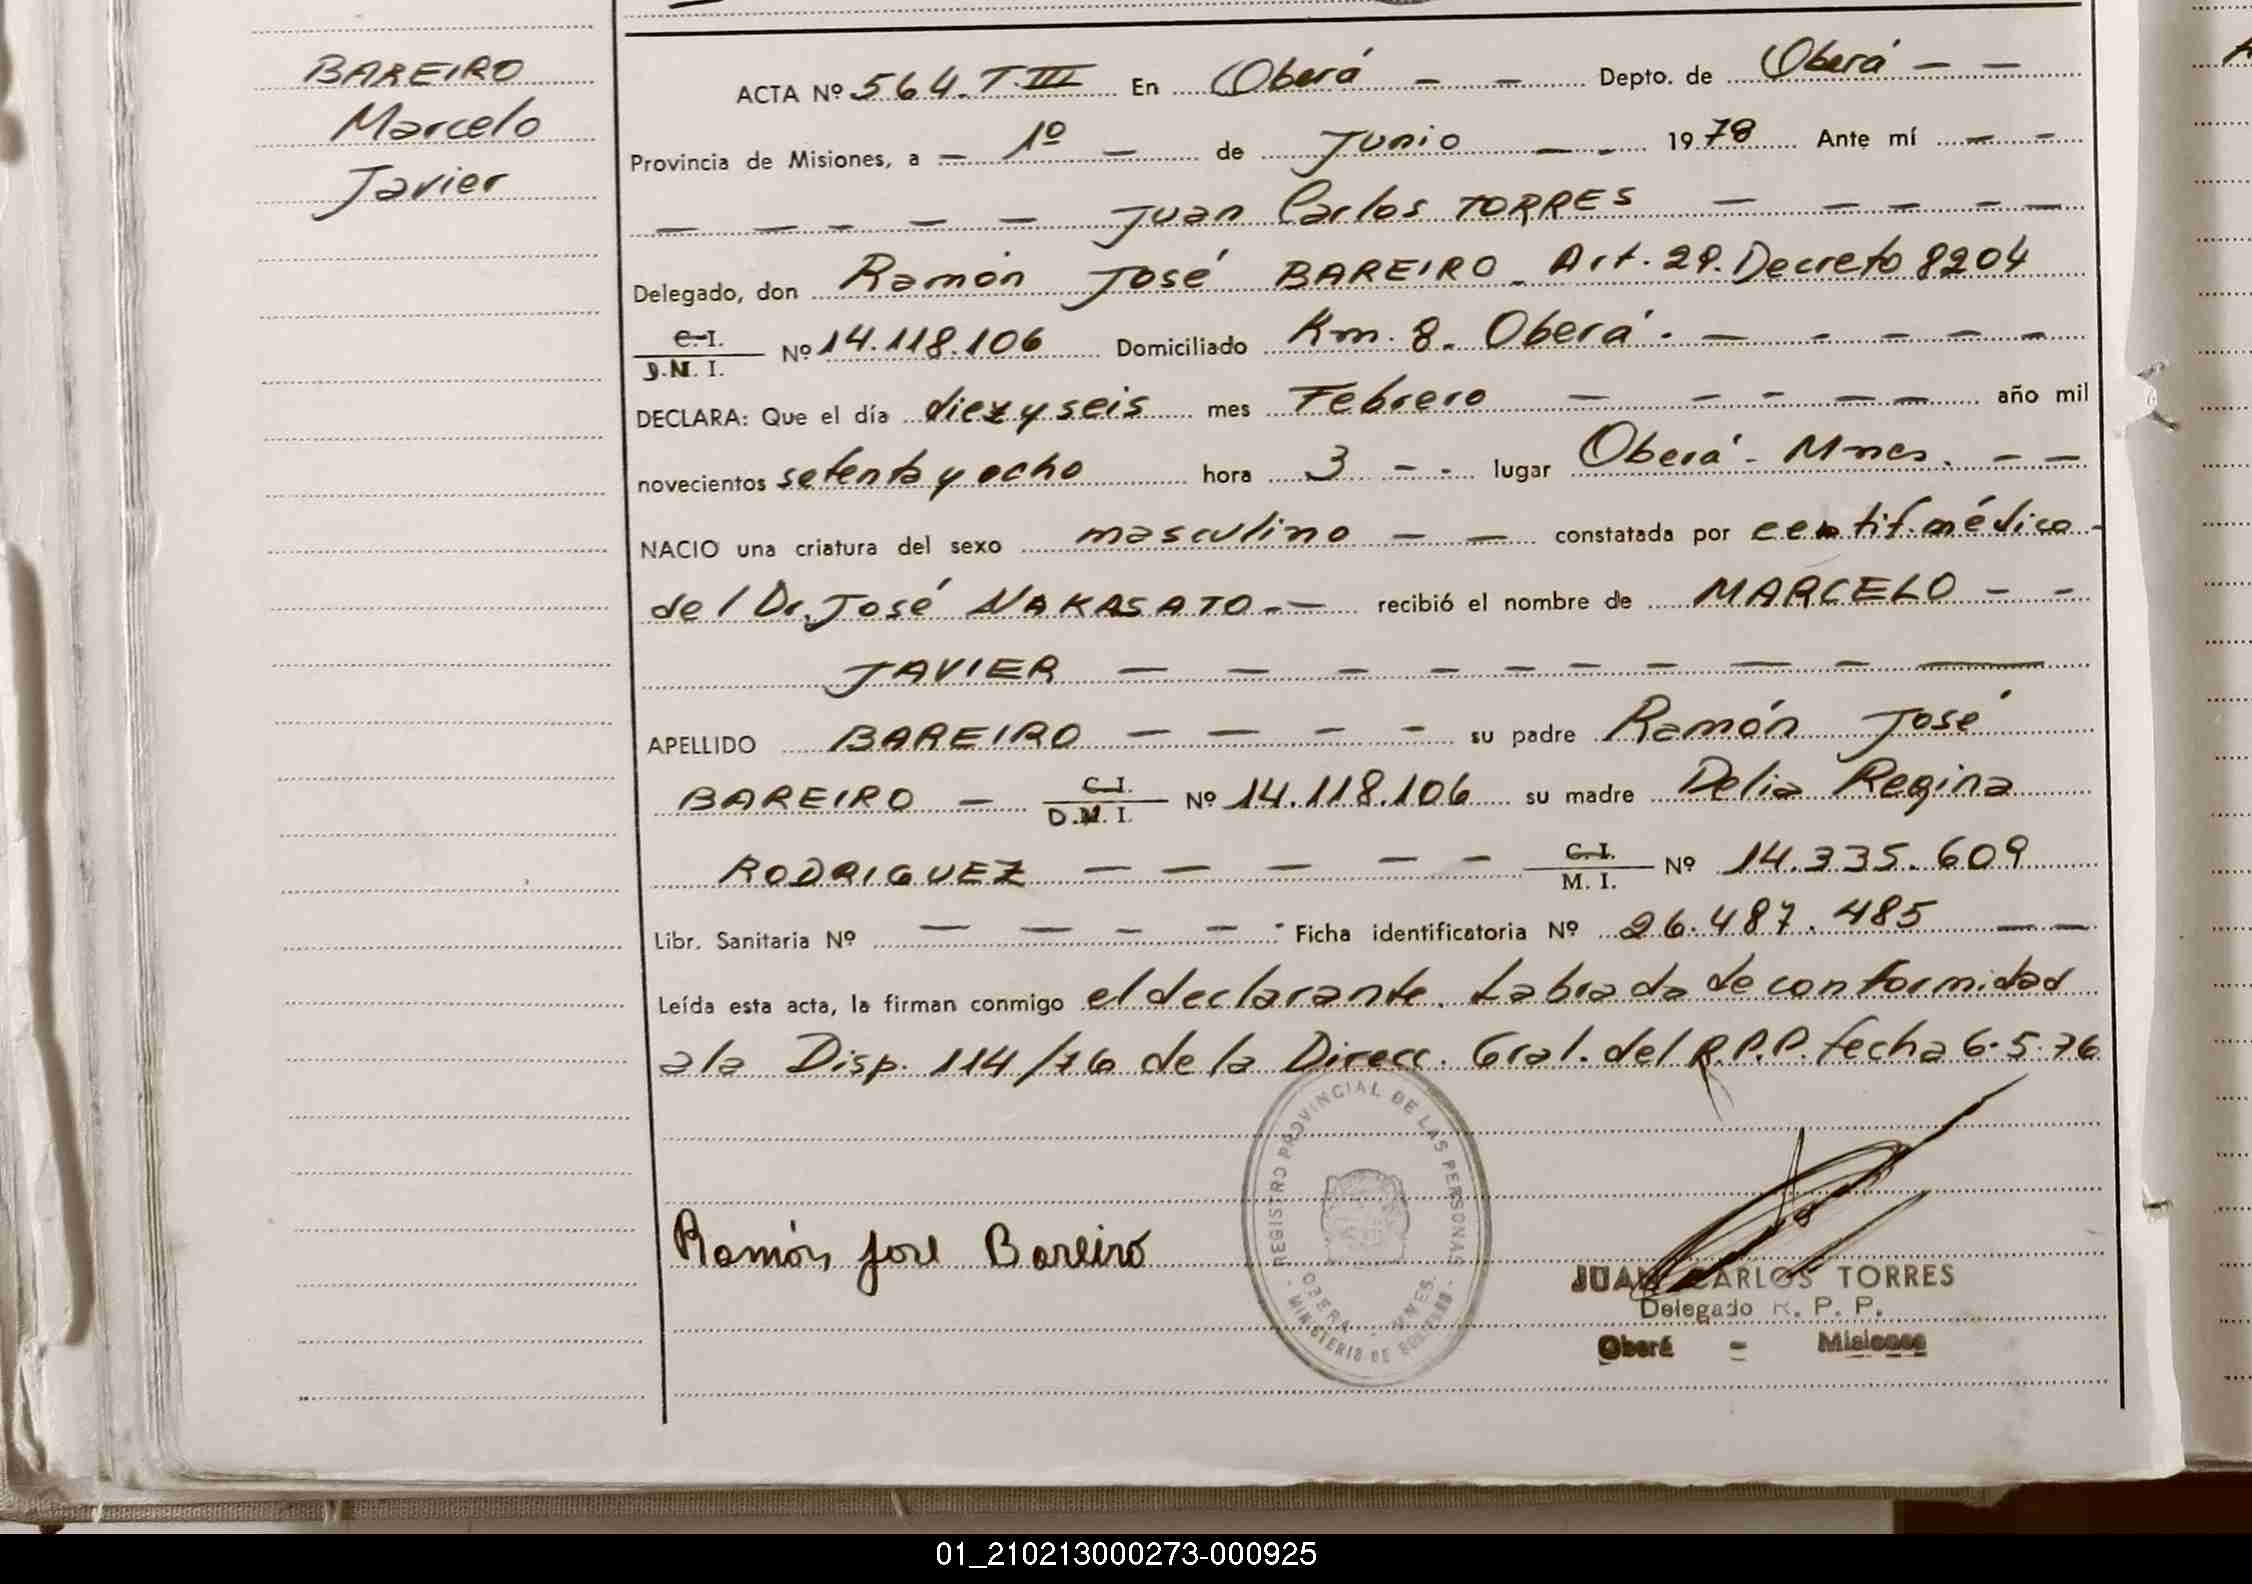 BAREIRO
Marcelo
Javier
ACTA Nº 564. T. III En Oberá — — Depto. de Oberá — —
Provincia de Misiones, a — 1º — de Junio — - 1978 Ante mí — -
— — - — — Juan Carlos TORRES — — - - —
Delegado, don Ramón José BAREIRO - Art. 29. Decreto 8204
C.I.
D.N.I. Nº 14.118.106 Domiciliado Km. 8. Oberá. — - — — -
DECLARA: Que el día diez y seis mes Febrero — - - — — año mil
novecientos setenta y ocho hora 3 - - lugar Oberá - Mnes. - —
NACIO una criatura del sexo masculino — — constatada por certif. médico -
del Dr. José NAKASATO.- — recibió el nombre de MARCELO - -
JAVIER — — - - - - - — - —
APELLIDO BAREIRO — — - - su padre Ramón José
BAREIRO — C.I.
D.N.I. Nº 14.118.106 su madre Delia Regina
RODRIGUEZ — — — — - C.I.
M.I. Nº 14.335.609
Libr. Sanitaria Nº — — - — - Ficha identificatoria Nº 26.487.485 — —
Leída esta acta, la firman conmigo el declarante. Labrada de conformidad
a la Disp. 114/76 de la Direcc. Gral. del R.P.P. fecha 6.5.76
REGISTRO PROVINCIAL DE LAS PERSONAS
OBERA - MNES.
- MINISTERIO DE GOBIERNO -
Ramón José Bareiro
JUAN CARLOS TORRES
Delegado R. P. P.
Oberá - Misiones
01_210213000273-000925